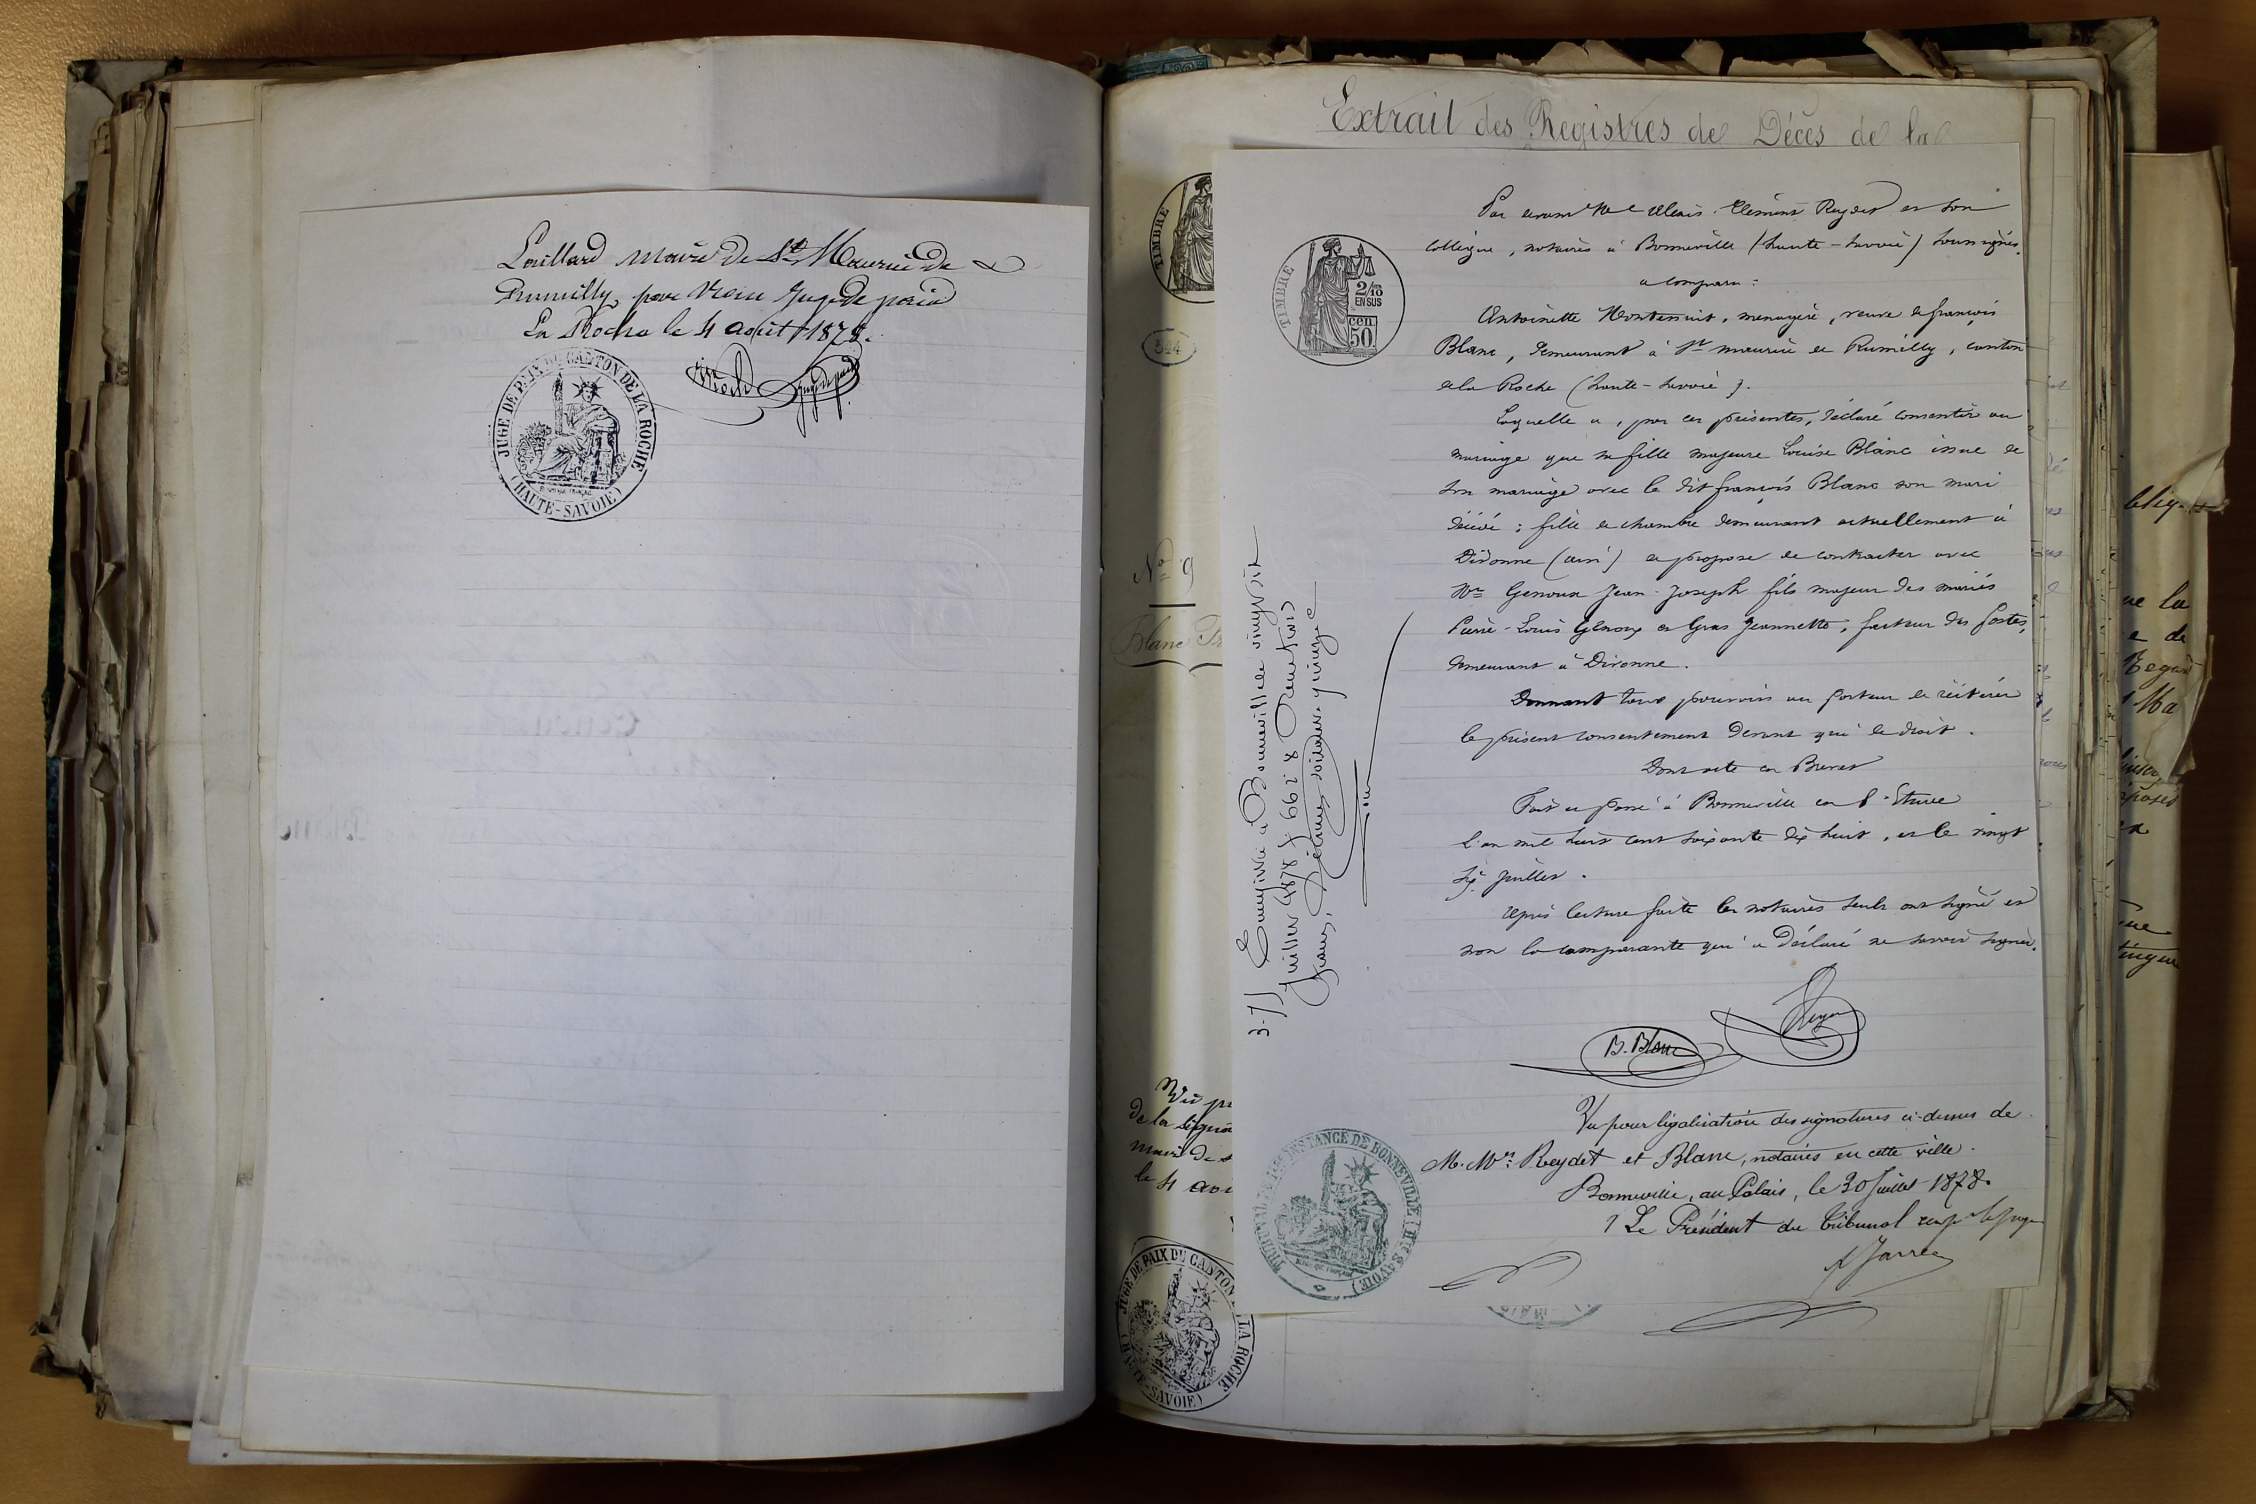 Paillard Maire de St Maurice de
Rumilly, par Nous Juge de paix
La Roche le 4 août 1878.
Juge de paix
JUGE DE PAIX DU CANTON DE LA ROCHE
(HAUTE-SAVOIE)
Extrait des Registres de Décès de la
TIMBRE
344
No 9
Blanc
Vu
de la
Maire de
le 4
JUGE DE PAIX DU CANTON LA ROCHE
SAVOIE)
TIMBRE
2/10
EN SUS
cen.
50
Par devant Me Alexis Clément Reydet et son
collègue, notaires à Bonneville (Haute-Savoie) soussignés,
a comparu :
Antoinette Montessuit, ménagère, veuve de françois
Blanc, demeurant à St maurice de Rumilly, canton
de la Roche (haute-Savoie).
Laquelle a, par ces présentes, déclaré consentir au
mariage que sa fille majeure Louise Blanc issue de
son mariage avec le dit françois Blanc son mari
décédé ; fille de chambre demeurant actuellement à
Divonne (ain) se propose de contracter avec
Mr Genoux Jean-Joseph fils majeur des mariés
Pierre-Louis Genoux et Gras Jeannette, facteur des postes,
demeurant à Divonne.
Donnant tous pouvoirs au porteur de réitérer
le présent consentement devant qui de droit.
Dont acte en Brevet
Fait et passé à Bonneville en l'Etude
l'an mil huit cent soixante dix huit, et le vingt
six Juillet.
Après lecture faite les notaires seuls ont signé et
non la comparante qui a déclaré ne savoir signer.
B. Blanc
3-75
Enregistré à Bonneville le vingt sept
Juillet 1878 f. 66
francs, Décimes soixante quinze c
Vu pour légalisation des signatures ci-dessus de
M. Mes Reydet et Blanc, notaires en cette ville.
Bonneville, au Palais, le 30 Juillet 1878.
Le Président du Tribunal
TRIBUNAL DE 1ère INSTANCE DE BONNEVILLE (Hte SAVOIE)